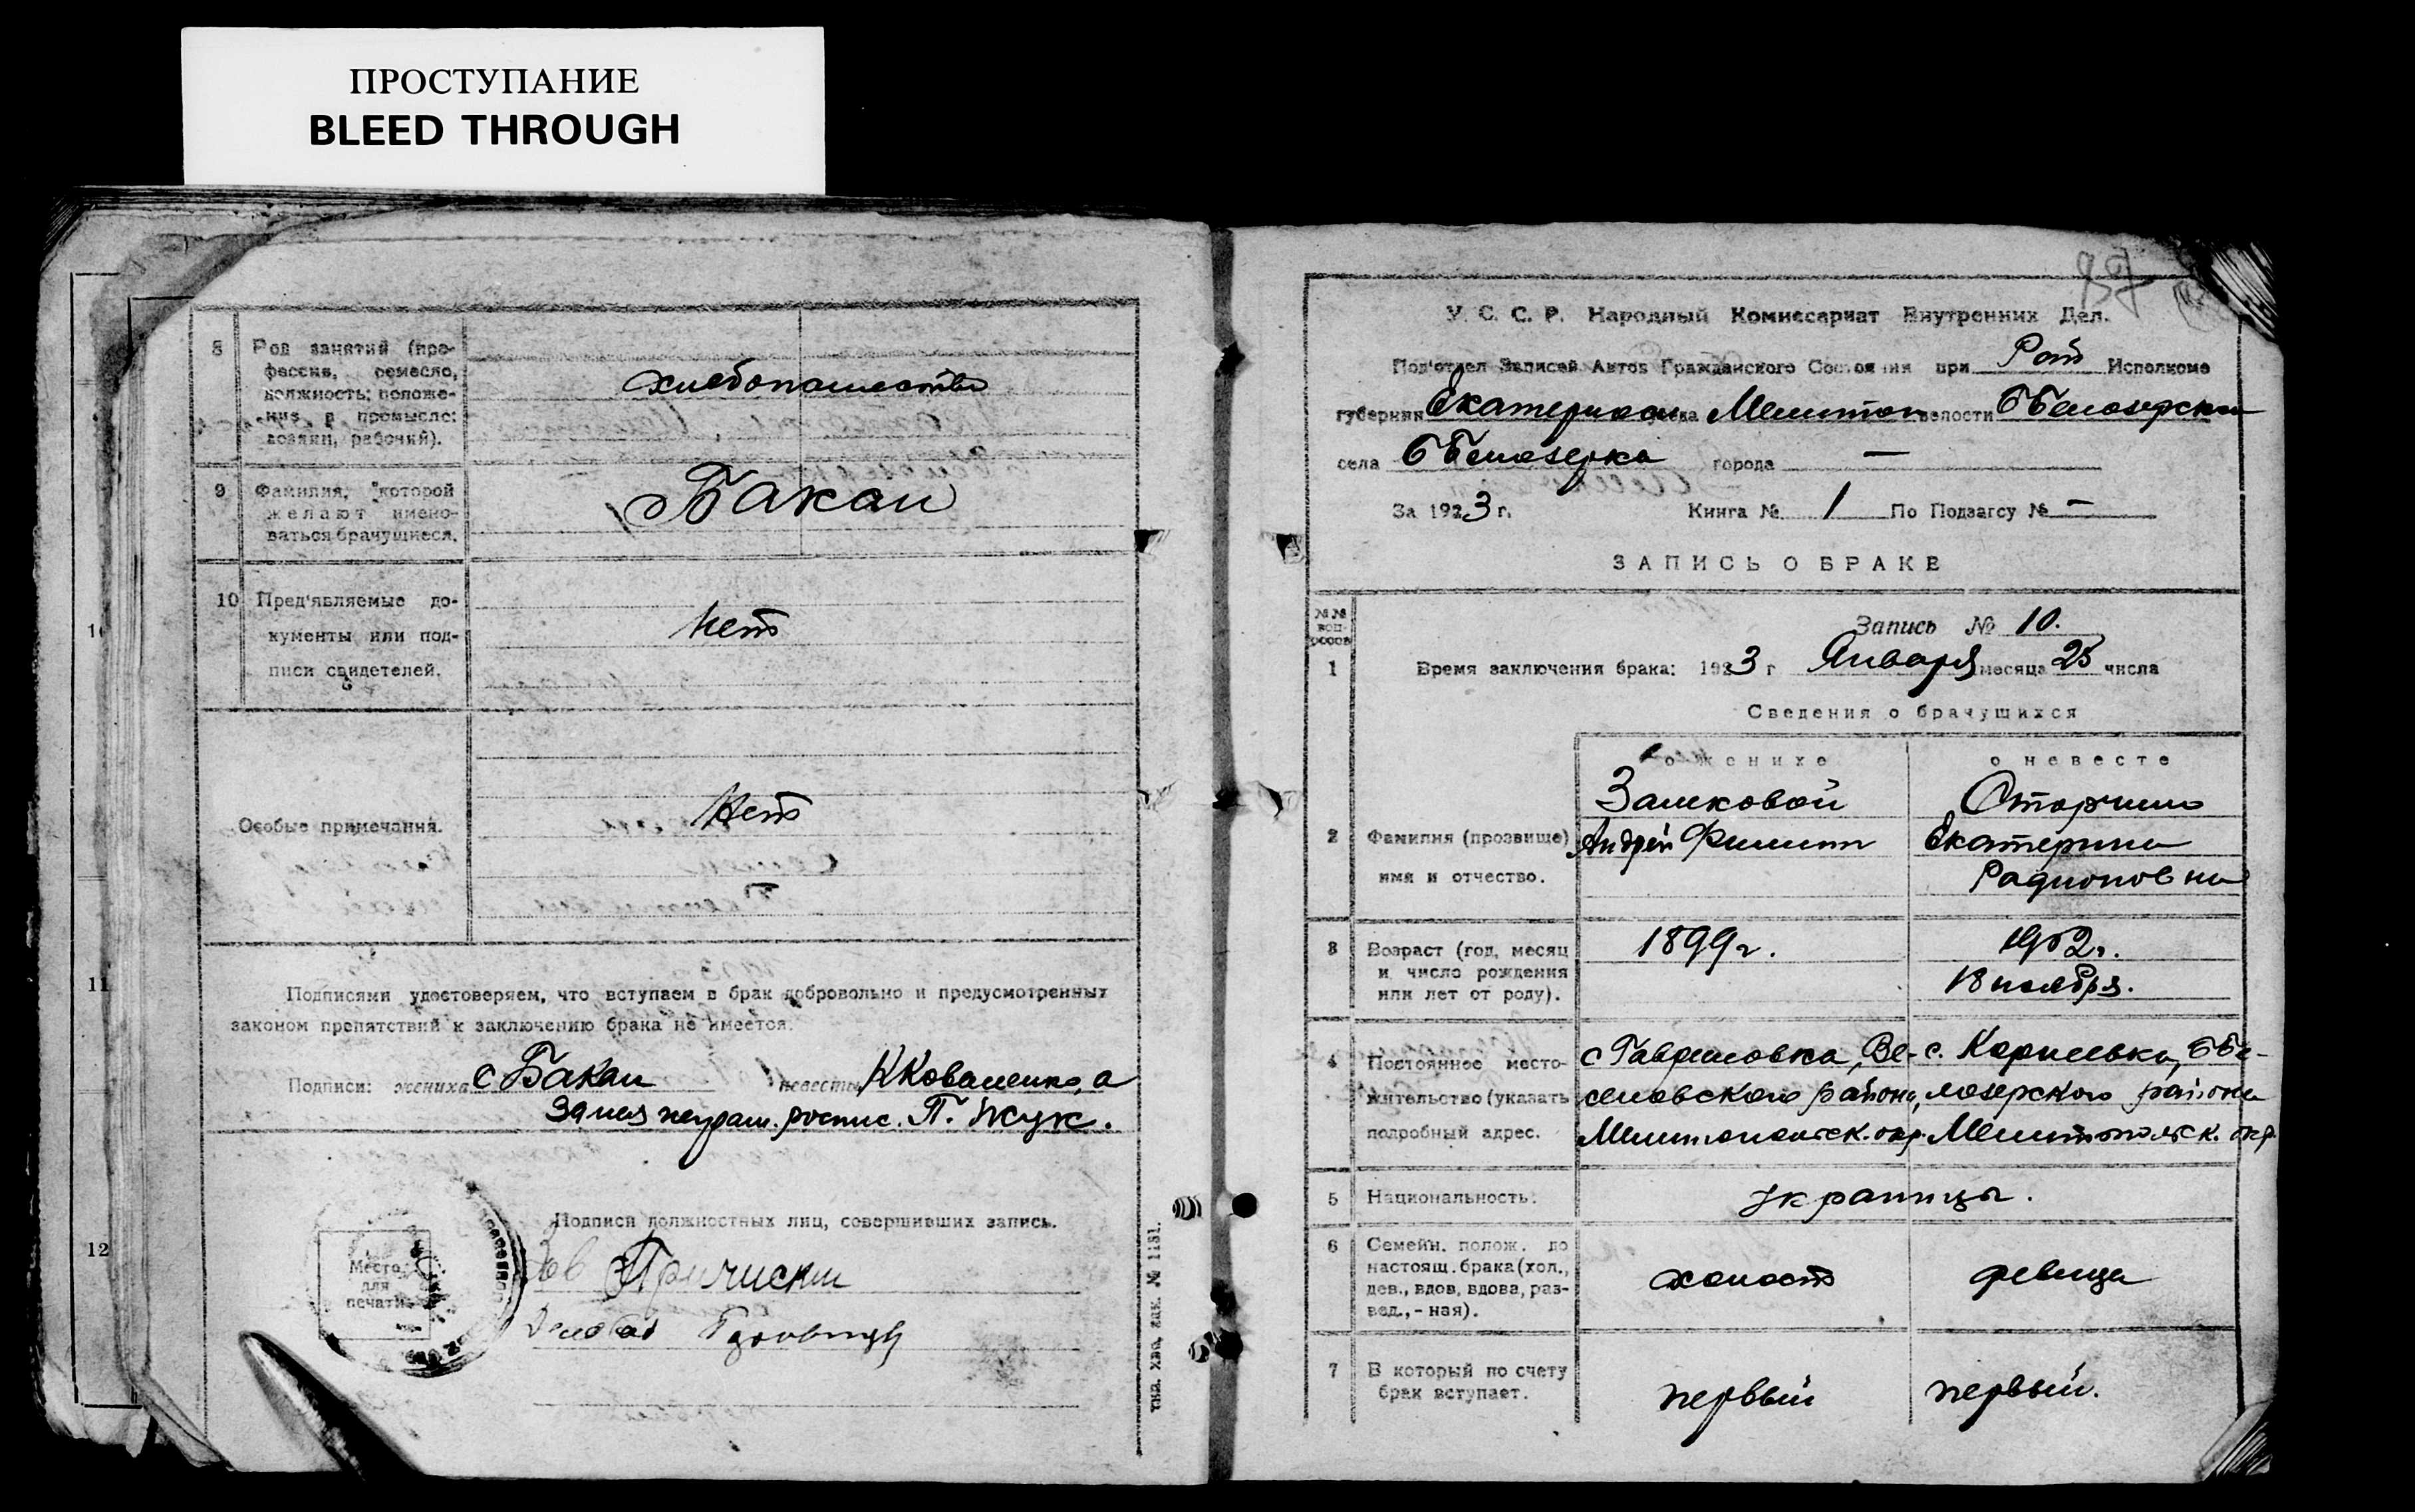 ПРОСТУПАНИЕ
BLEED THROUGH
8 Род занятий (про-
фессия, ремесло,
должность; положе-
ние в промысле:
хозяин, рабочий).
хлебопашество
9 Фамилия, которой
желают имено-
ваться брачущиеся.
Бакай
10 Пред'являемые до-
кументы или под-
писи свидетелей.
Нет
Особые примечания.
Нет
Подписями удостоверяем, что вступаем в брак добровольно и предусмотренных
законом препятствий к заключению брака не имеется.
Подписи: жениха С Бакай невесты К Коваленко, а
за нея неграм. роспис. П. Жук.
Подписи должностных лиц, совершивших запись.
Зав
Место
для
печати
10
11
12
У. С. С. Р. Народный Комиссариат Внутренних Дел.
Под'отдел Записей Актов Гражданского Состояния при Рай Исполкоме
губернии Екатеринос уезда Мелитоп волости ББелозерской
села ББелозерка города —
За 1923 г. Книга № 1 По Подзагсу № —
ЗАПИСЬ О БРАКЕ
№№
воп-
росов
Запись № 10.
1 Время заключения брака: 1923 г Января месяца 25 числа
Сведения о брачущихся
о женихе о невесте
2 Фамилия (прозвище)
имя и отчество.
Замковой
Андрей Филипп
Екатерина
Радионовна
3 Возраст (год, месяц
и число рождения
или лет от роду).
1899г.
1902г.
18 ноября.
4 Постоянное место-
жительство (указать
подробный адрес.
с Гавриловка, Ве-
селовского района,
Мелитопольск. окр.
с. Корнеевка, ББе-
лозерского района
Мелитопольск. окр.
5 Национальность:
украинцы.
6 Семейн. полож. до
настоящ. брака (хол.,
дев., вдов, вдова, раз-
вед., - ная).
холост
девица
7 В который по счету
брак вступает.
первый
первый.